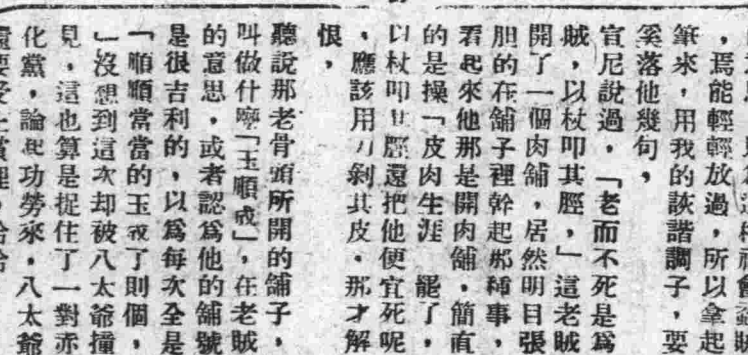 ，焉能輕輕放過，所以拿起
筆來，用我的詼諧調子，要
奚落他幾句，
宣尼說過，「老而不死是爲
賊，以杖叩其脛，」這老賊
開了一個肉舖，居然明目張
胆的在舖子裡幹起那種事，
看起來他那是開肉舖，簡直
的是操「皮肉生涯 罷了，
以杖叩其脛還把他便宜死呢
，應該用刀剝其皮，那才解
恨，
聽說那老骨頭所開的舖子，
叫做什麽「玉順成」，在老賊
的意思，或者認爲他的舖號
是很吉利的，以爲每次全是
「順順當當的玉成了則個，
」沒想到這次却被八太爺撞
見，這也算是捉住了一對赤
化黨，論起功勞來，八太爺